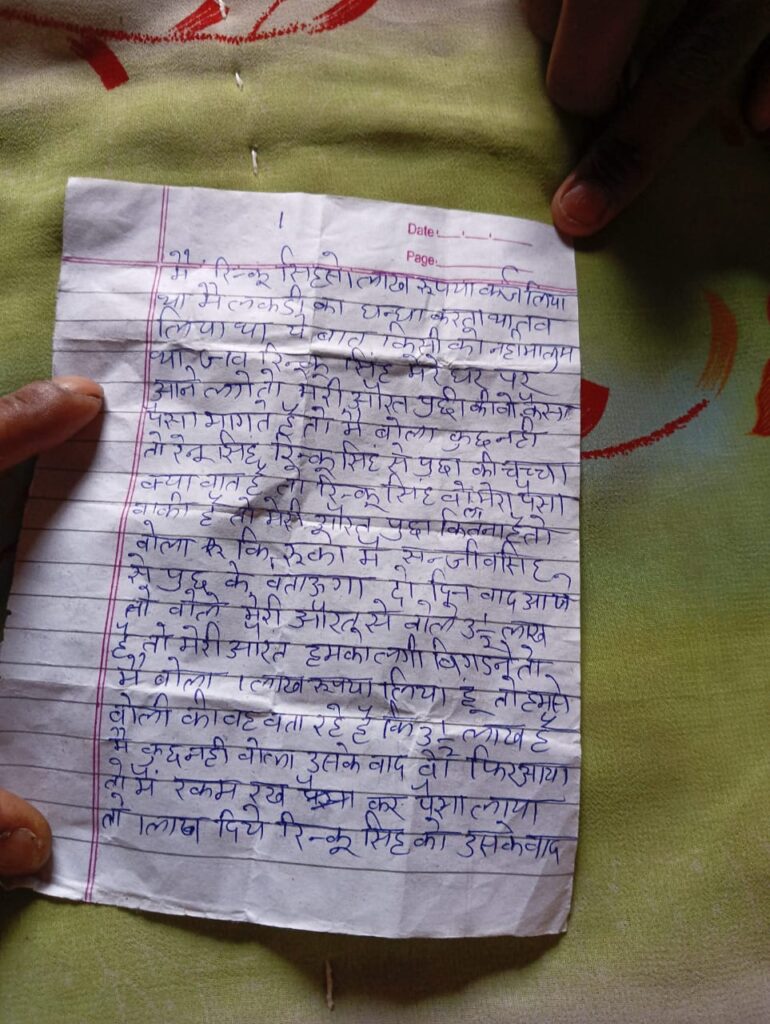 1
Date
Page
मै रिन्कू सिंह से 1 लाख रूपया कर्ज लिया
था मै लकडी का धन्धा करता था तव
लिया था ये बात किसी को नही मालुम
था जव रिन्कू सिंह मेरे घर पर
आने लगे तो मेरी औरत पुछी की वो कैसा
पैसा मागते है तो मै बोला कुछ नही
तो रेनू सिंह रिन्कू सिंह से पुछा की चच्चा
क्या वात है तो रिन्कू सिंह वोले मेरा पैसा
वाकी है तो मेरी औरत पुछा कितना है तो
वोला कि रूका मै सन्जीव सिंह
से पुछ के वताऊगा दो दिन वाद आये
तो वोले मेरी औरत से वोले 3½ लाख
है तो मेरी औरत हमका लगी विगडने तो
मै बोला 1 लाख रूपया लिया हूं तो हमसे
वोली की वह वता रहे है कि 3½ लाख है
मै कुछ नही वोला उसके वाद वो फिर आया
तो मै रकम रख कर पैसा लाया
तो 1 लाख दिये रिन्कू सिंह को उसके वाद